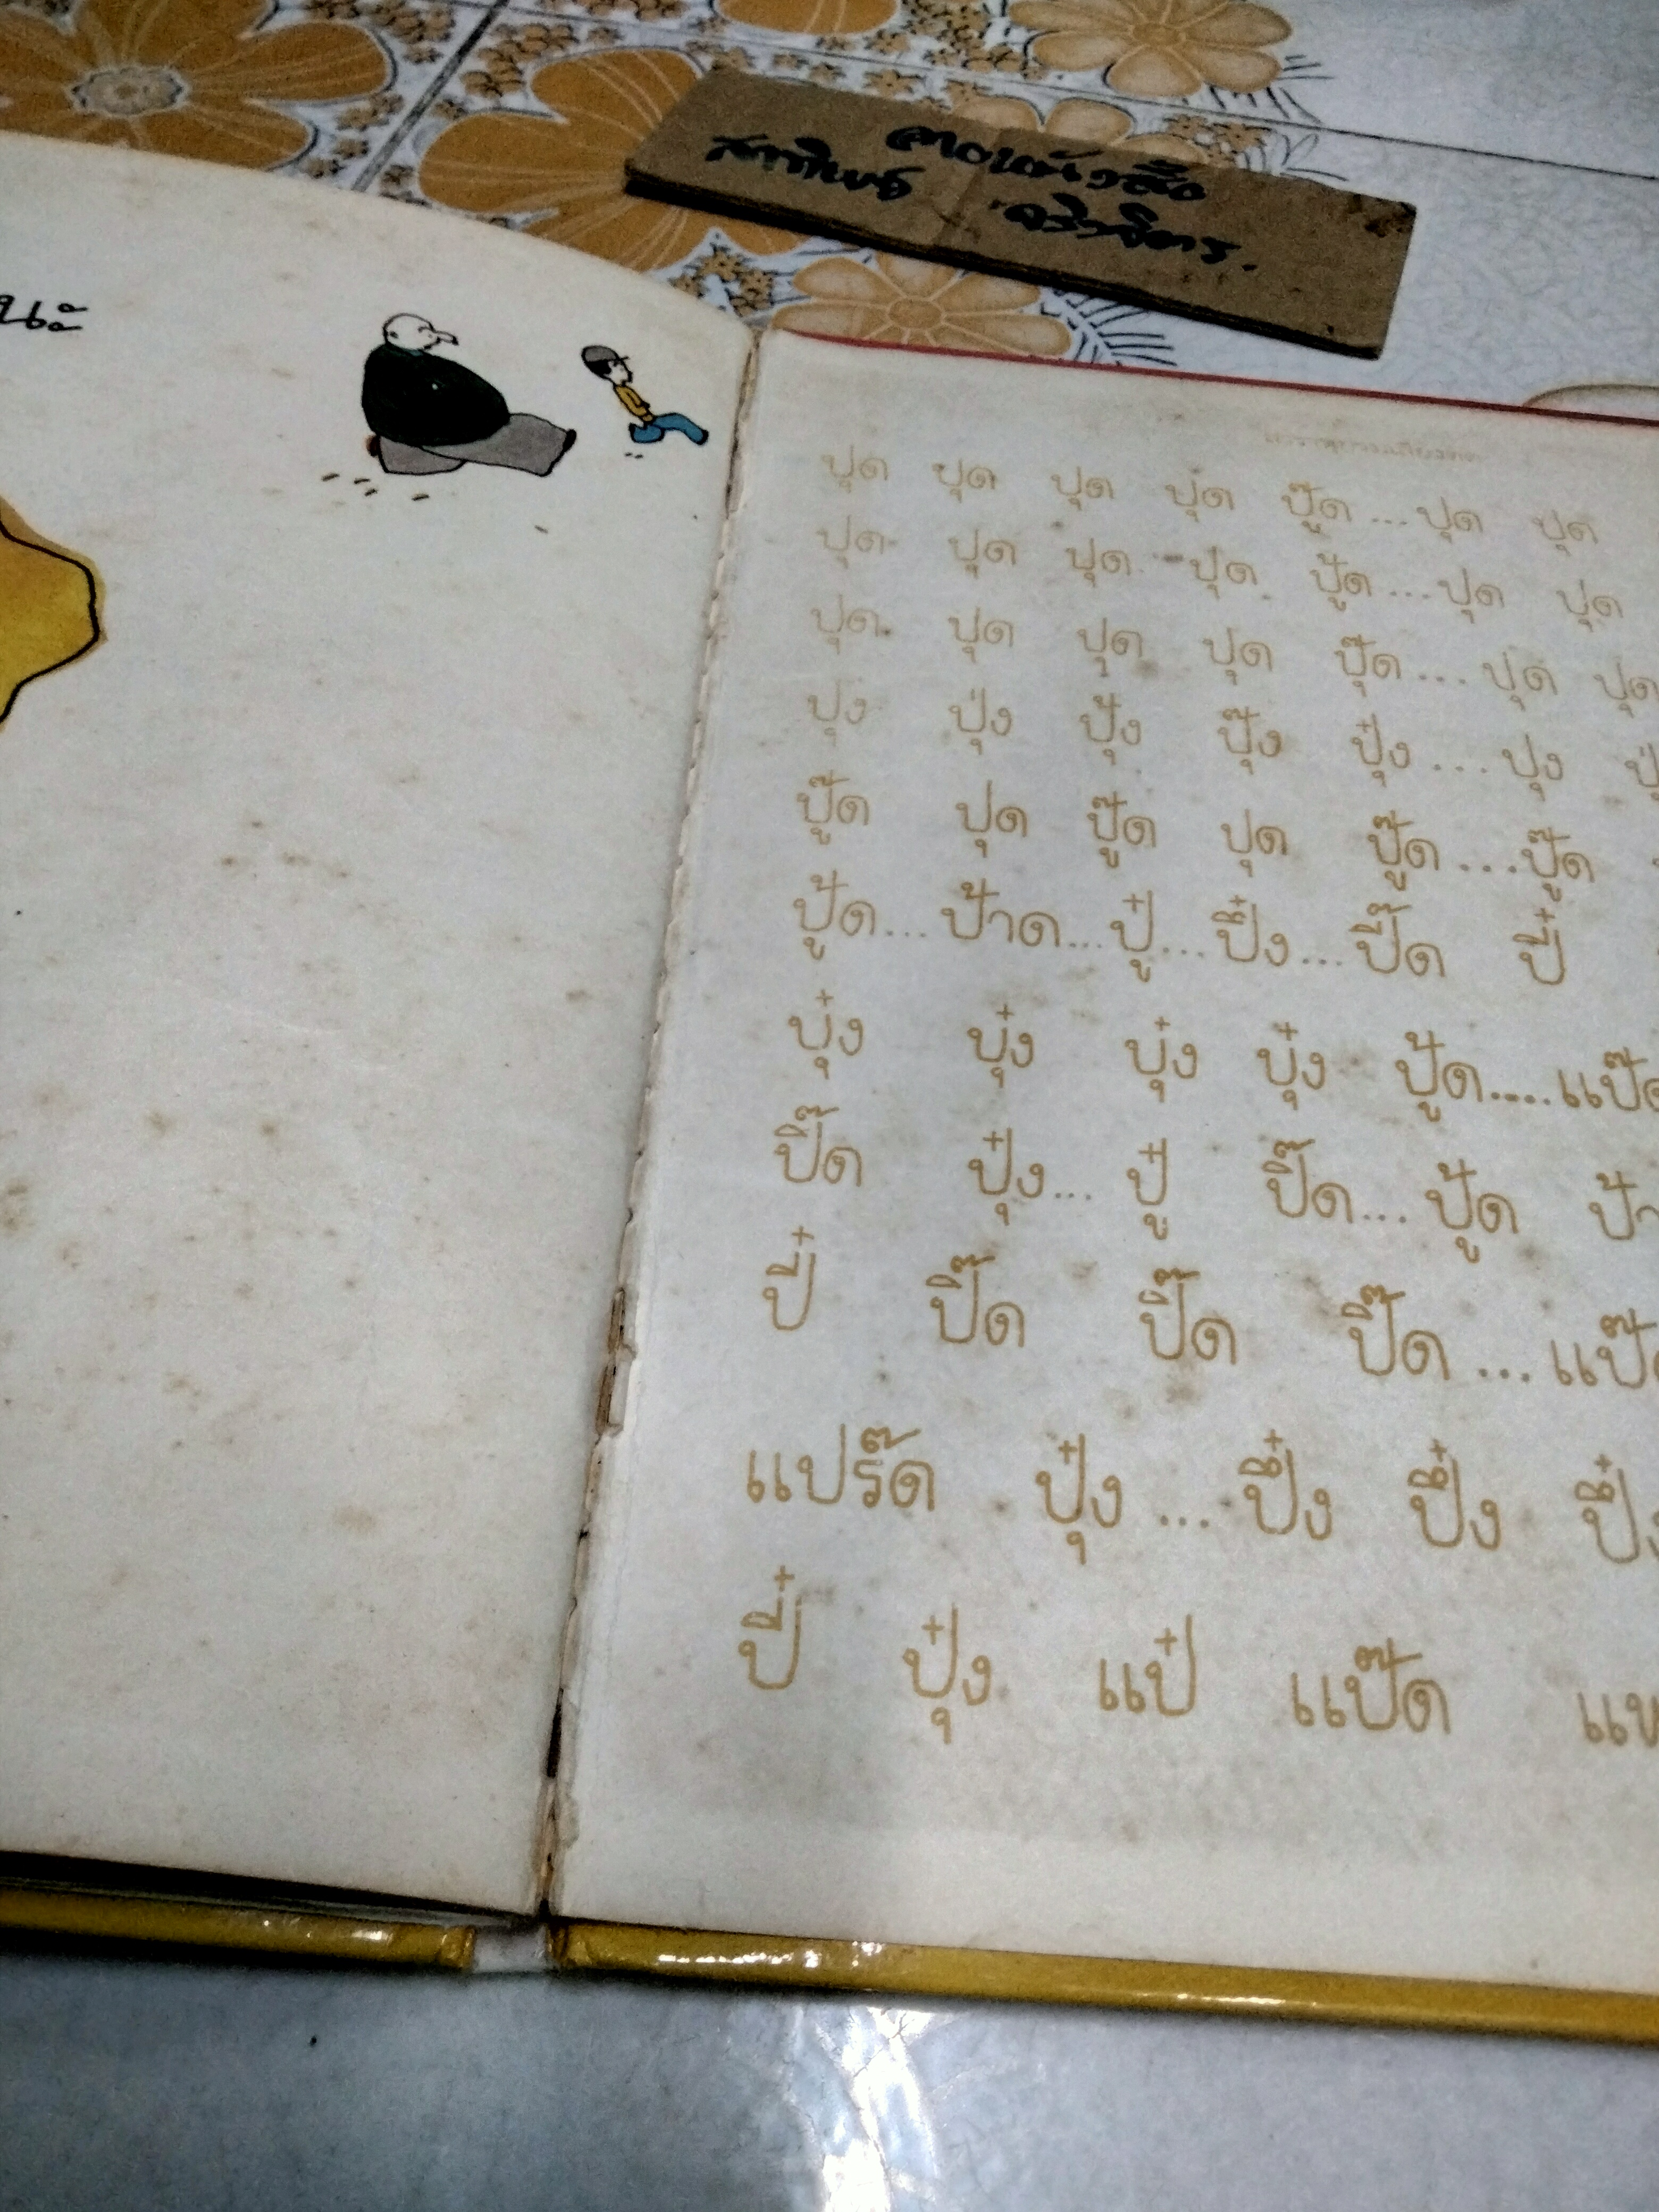 ปุด ปุด ปุด ปุด ปู๊ด...ปุด ปุด
ปุด ปุด ปุด ปุด ปู้ด...ปุด ปุด
ปุด ปุด ปุด ปุด ปุ๊ด...ปุด ปุด
ปุง ปุ่ง ปุ้ง ปุ๊ง ปุ๋ง...ปุง
ปู๊ด ปุด ปู๊ด ปุด ปู๊ด...ปู๊ด
ปู้ด...ป้าด...ปู๋...ปึ๋ง...ปี๊ด ปี๋
บุ๋ง บุ๋ง บุ๋ง บุ๋ง ปู้ด....
ปี๊ด ปุ๋ง...ปู๋ ปี๊ด...ปู้ด
ปี๋ ปี๊ด ปี๊ด ปี๊ด...
แปร๊ด ปุ๋ง...ปึ๋ง ปึ๋ง
ปี๋ ปุ๋ง แป๋ แป๊ด